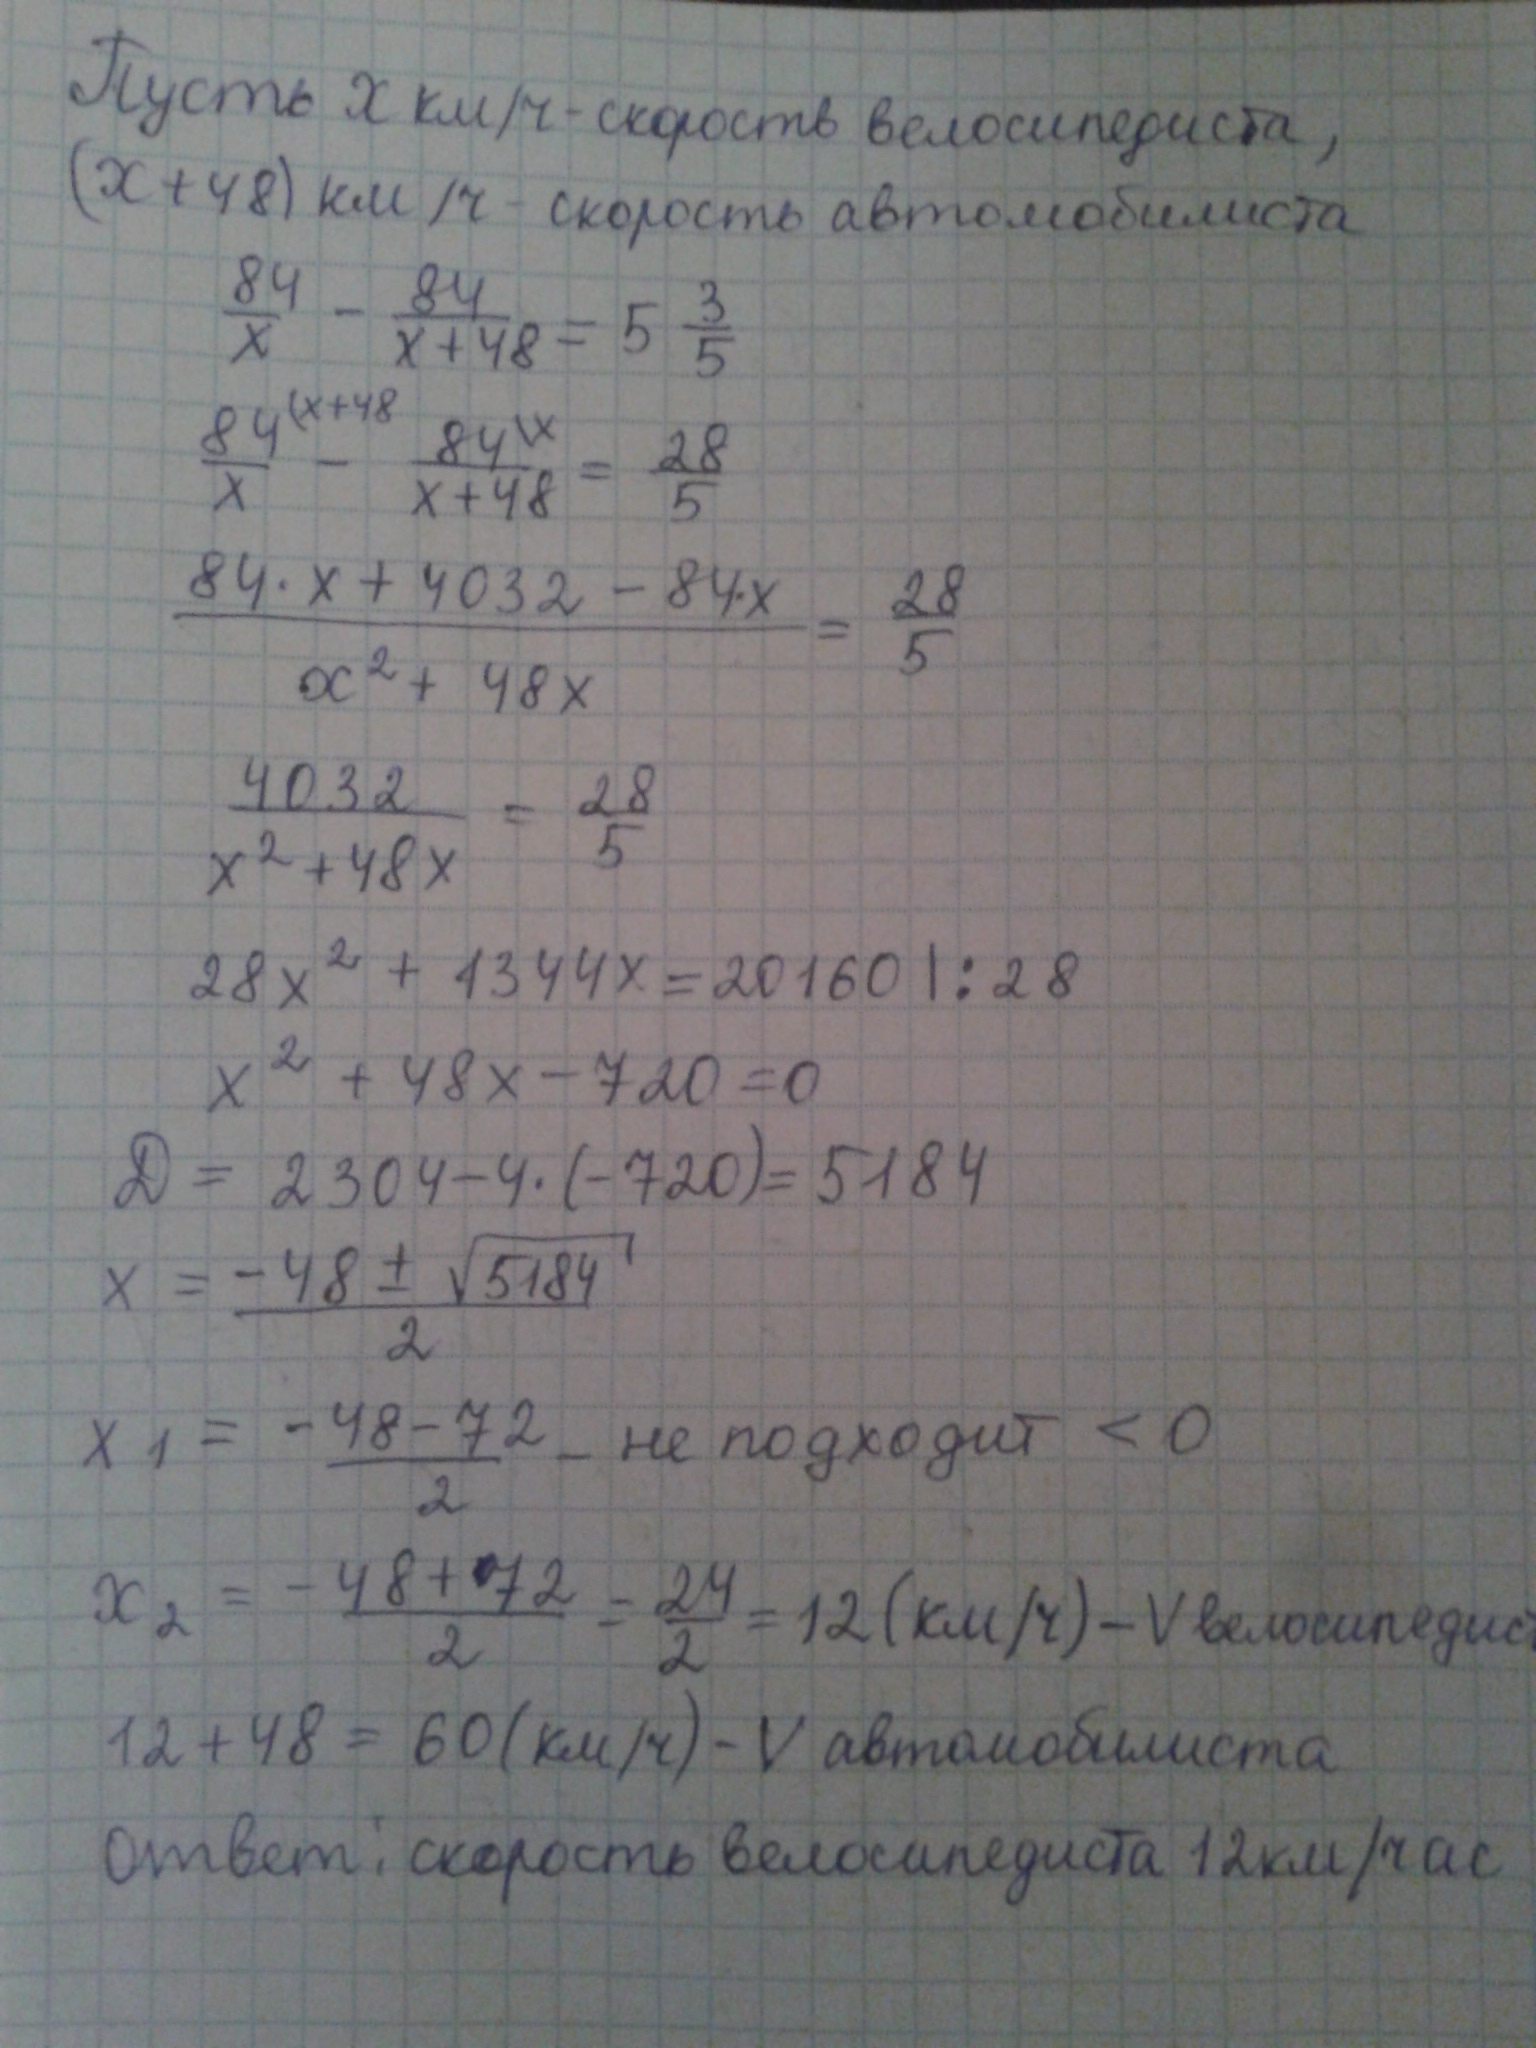 Пусть x км/ч - скорость велосипедиста,
(x+48) км/ч - скорость автомобилиста
84/x - 84/(x+48) = 5 3/5
84\(x+48 /x - 84\x /(x+48) = 28/5
(84·x + 4032 - 84·x)/(x² + 48x) = 28/5
4032/(x²+48x) = 28/5
28x² + 1344x = 20160 |:28
x² + 48x - 720 = 0
D = 2304 - 4·(-720) = 5184
x = (-48 ± √5184)/2
x₁ = (-48-72)/2 - не подходит < 0
x₂ = (-48+72)/2 = 24/2 = 12 (км/ч) - V велосипедист
12+48 = 60 (км/ч) - V автомобилиста
Ответ: скорость велосипедиста 12км/час